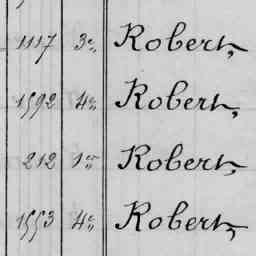 1117 3e Robert,
1592 4e Robert,
212 1er Robert,
1553 4e Robert,